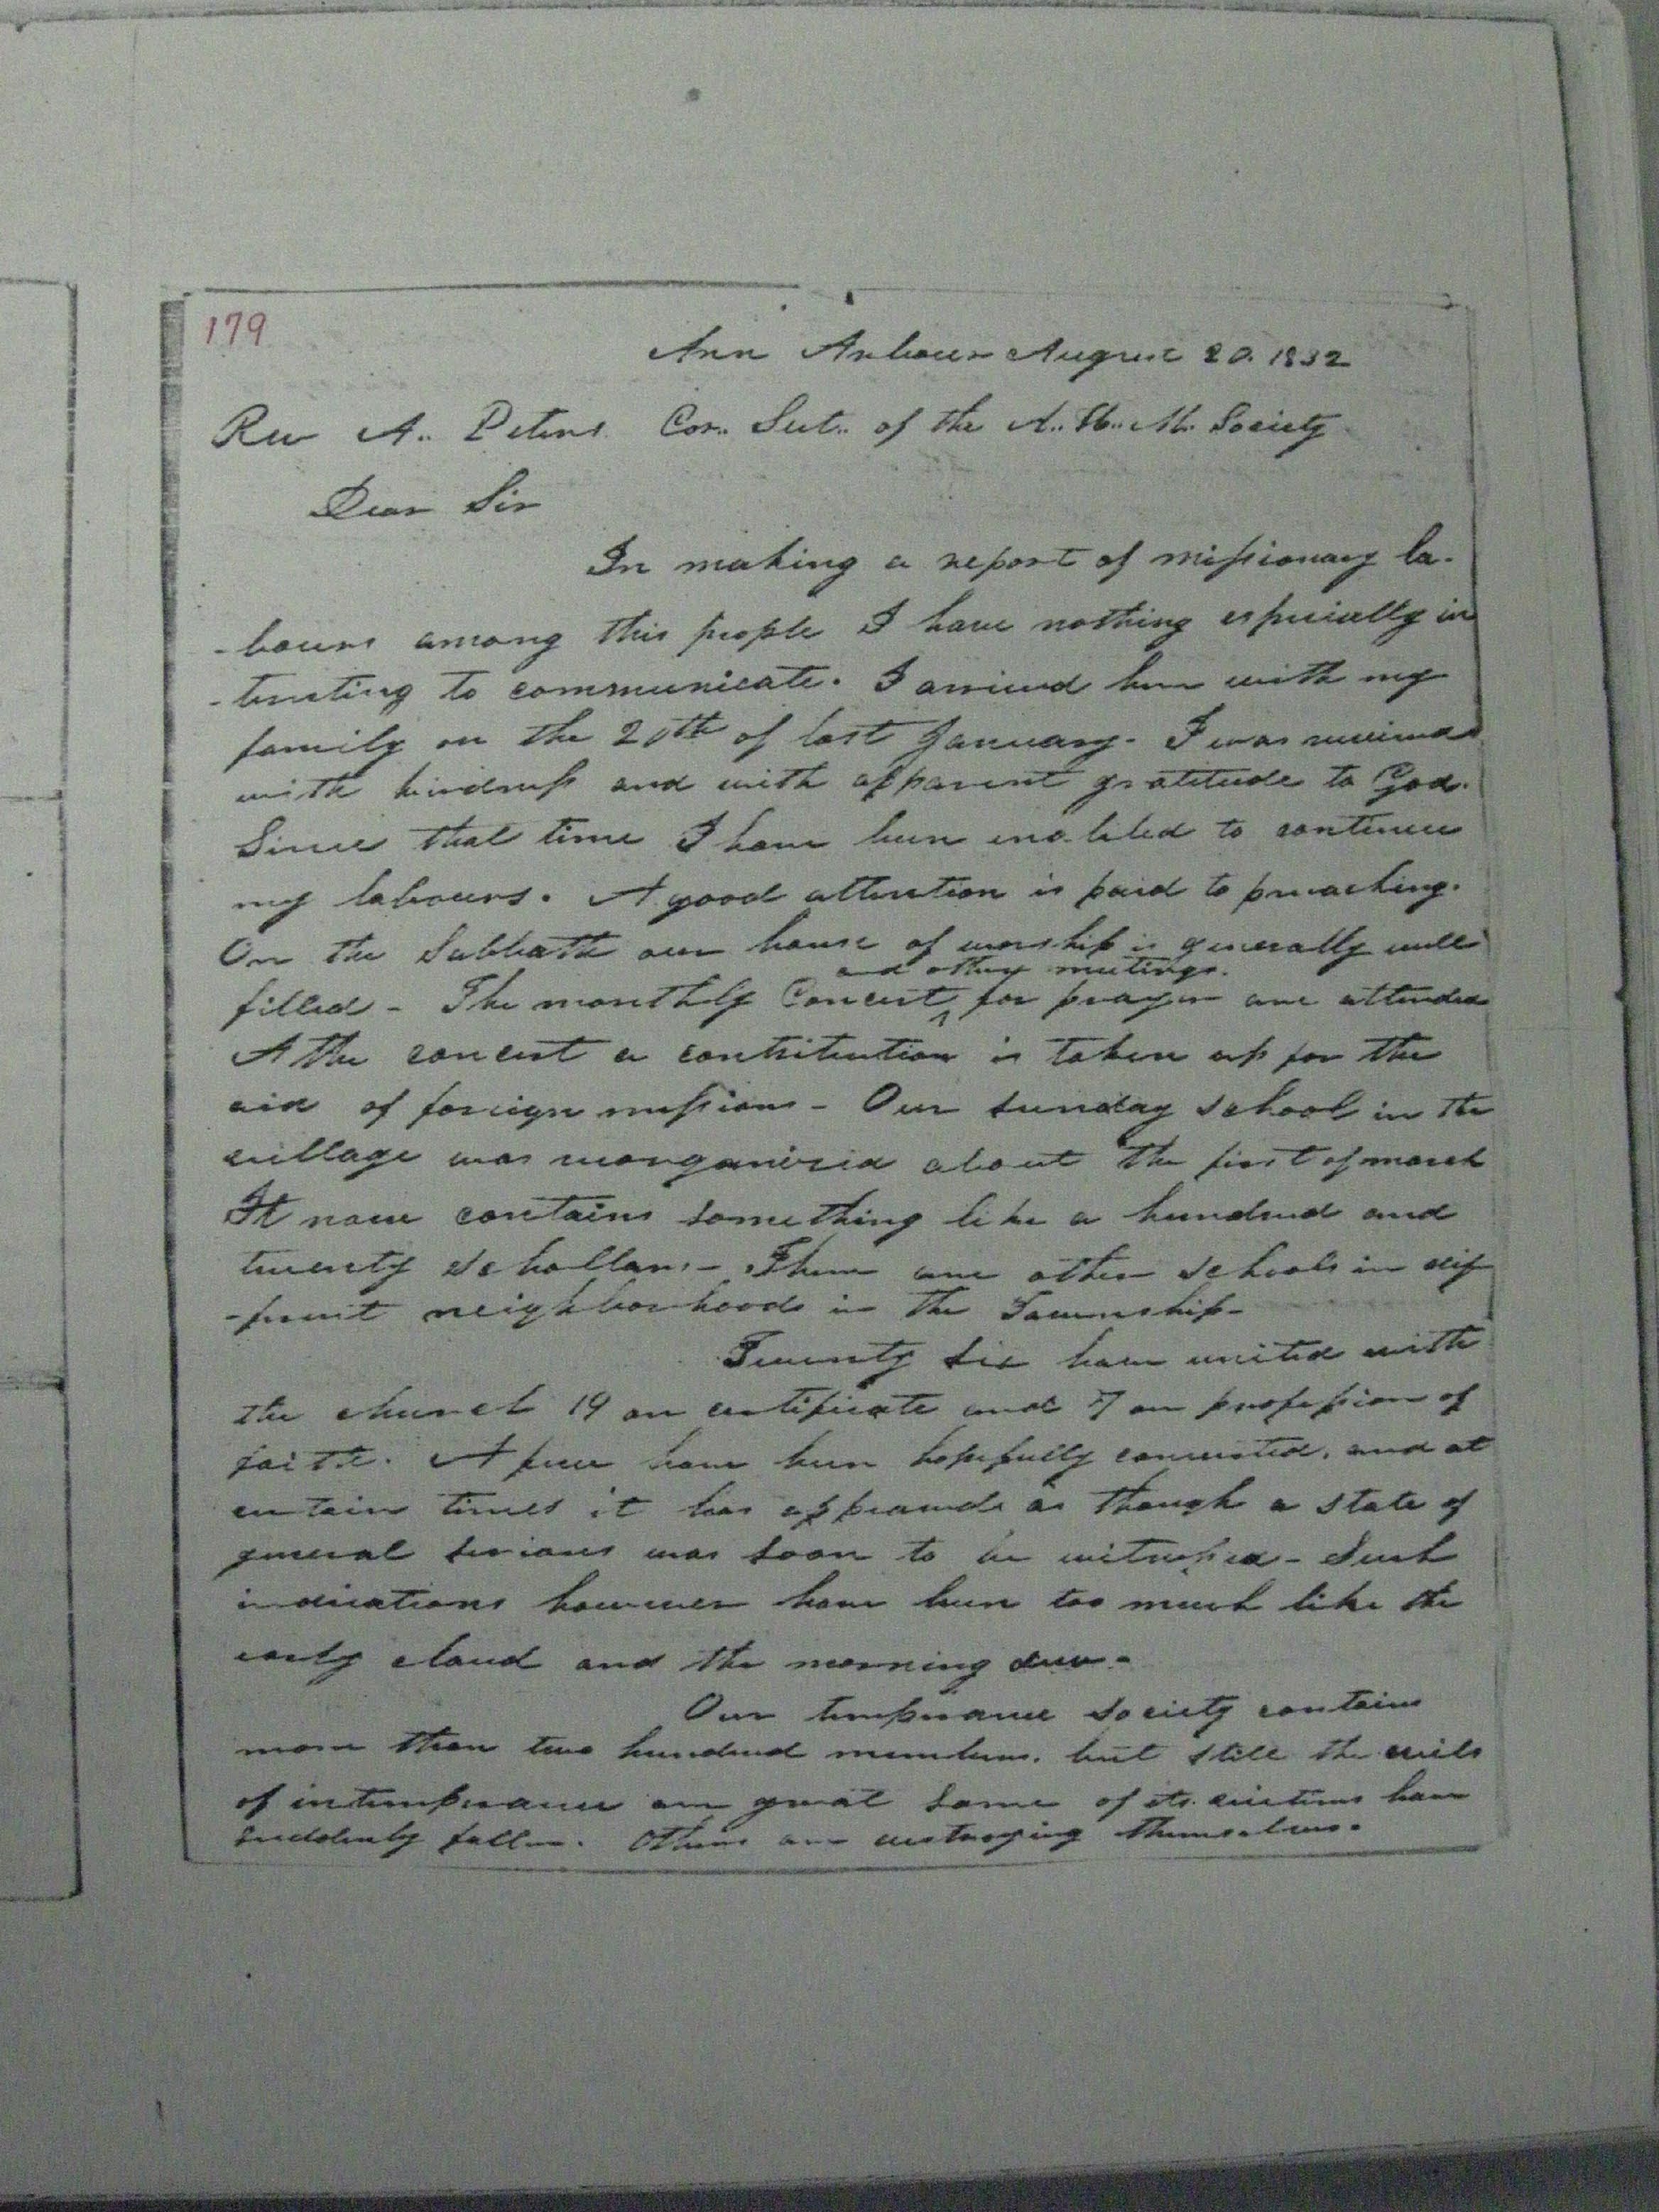 179
Ann Arbour August 20. 1832
Rev A. Peters. Cor. Sect. of the A. H. M. Society
Dear Sir
In making a report of missionary la-
-bours among this people I have nothing especially in
-teresting to communicate. I arrived here with my
family on the 20th of last January. I was received
with kindness and with apparent gratitude to God.
Since that time I have been enabled to continue
my labours. A good attention is paid to preaching.
On the Sabbath our house of worship is generally well
and other meetings.
filled - The monthly Concert ^ for prayer are attended
At the concert a contribution is taken up for the
aid of foreign missions - Our sunday school in the
village was reorganized about the first of march
It now contains something like a hundred and
twenty schollars - There are other schools in dif
-ferent neighborhoods in the Township -
Twenty six have united with
the church 19 on certificate and 7 on profession of
faith. A few have been hopefully converted, and at
certain times it has appeared as though a state of
general serious was soon to be witnessed - Such
indications however have been too much like the
early cloud and the morning dew -
Our temperance society contains
more than two hundred members. but still the evils
of intemperance are great Some of its victims have
suddenly fallen. Others are destroying themselves.